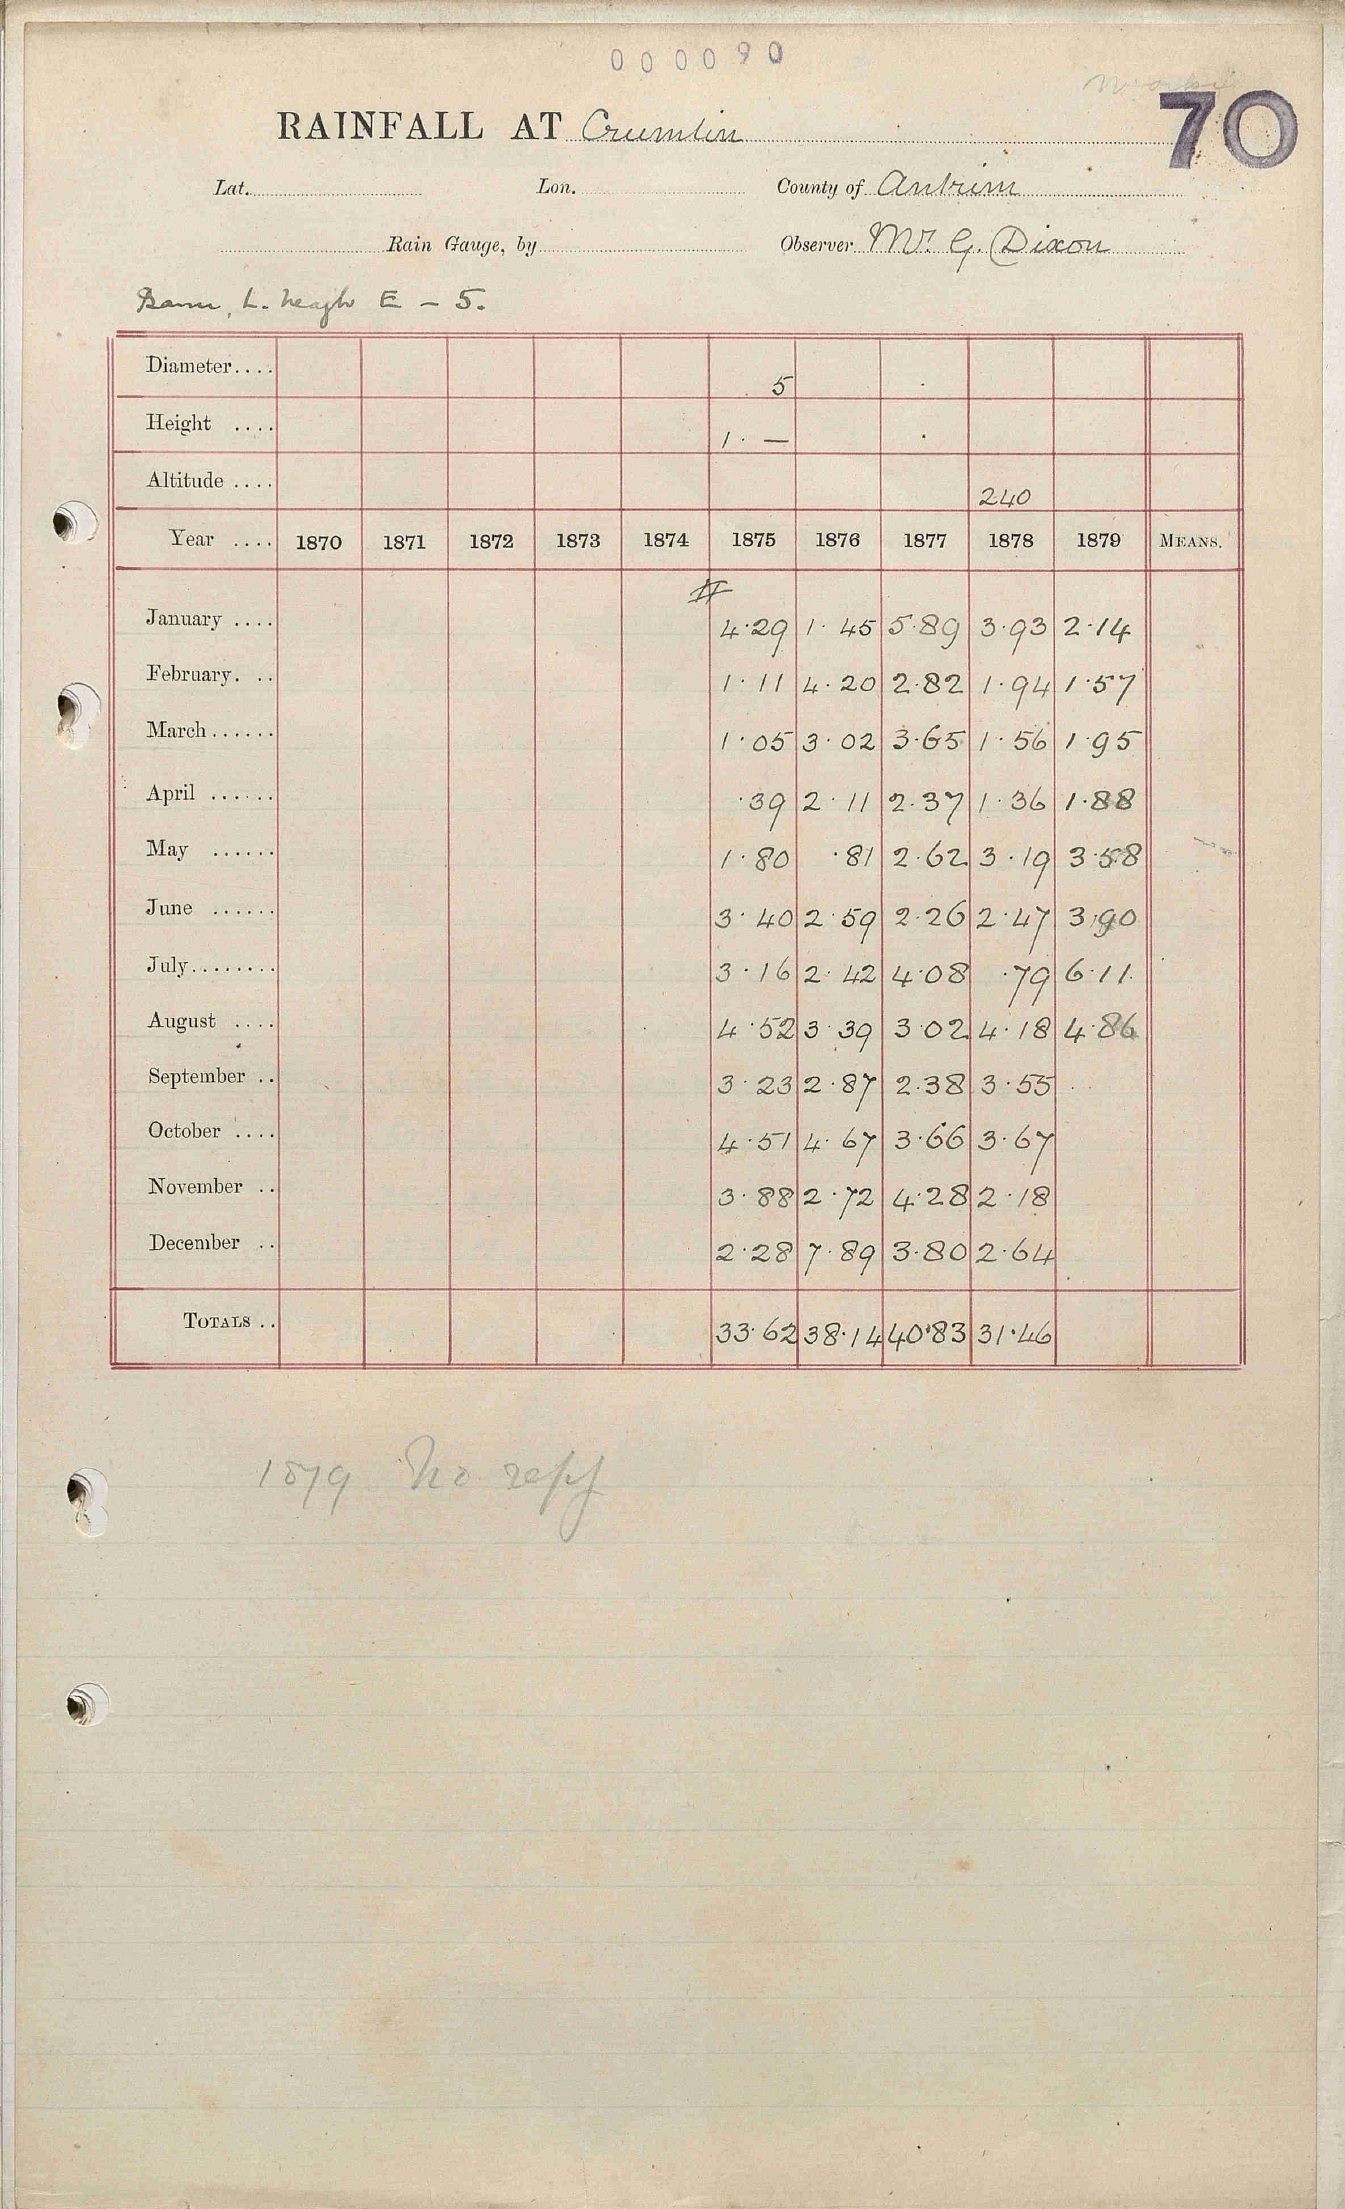 000090
70
RAINFALL AT Crumlin
Lat. Lon. County of Antrim
Rain Gauge, by Observer Mr. G. Dixon
Bann, L. Neagh E – 5.
Diameter.... 5
Height .... 1· —
Altitude .... 240
Year .... 1870 1871 1872 1873 1874 1875 1876 1877 1878 1879 MEANS.
January .... 4·29 1·45 5·89 3·93 2·14
February. .. 1·11 4·20 2·82 1·94 1·57
March...... 1·05 3·02 3·65 1·56 1·95
April ...... ·39 2·11 2·37 1·36 1·88
May ...... 1·80 ·81 2·62 3·19 3·58
June ...... 3·40 2·59 2·26 2·47 3·90
July........ 3·16 2·42 4·08 ·79 6·11
August .... 4·52 3·39 3·02 4·18 4·86
September .. 3·23 2·87 2·38 3·55
October .... 4·51 4·67 3·66 3·67
November .. 3·88 2·72 4·28 2·18
December .. 2·28 7·89 3·80 2·64
TOTALS .. 33·62 38·14 40·83 31·46
1879 No